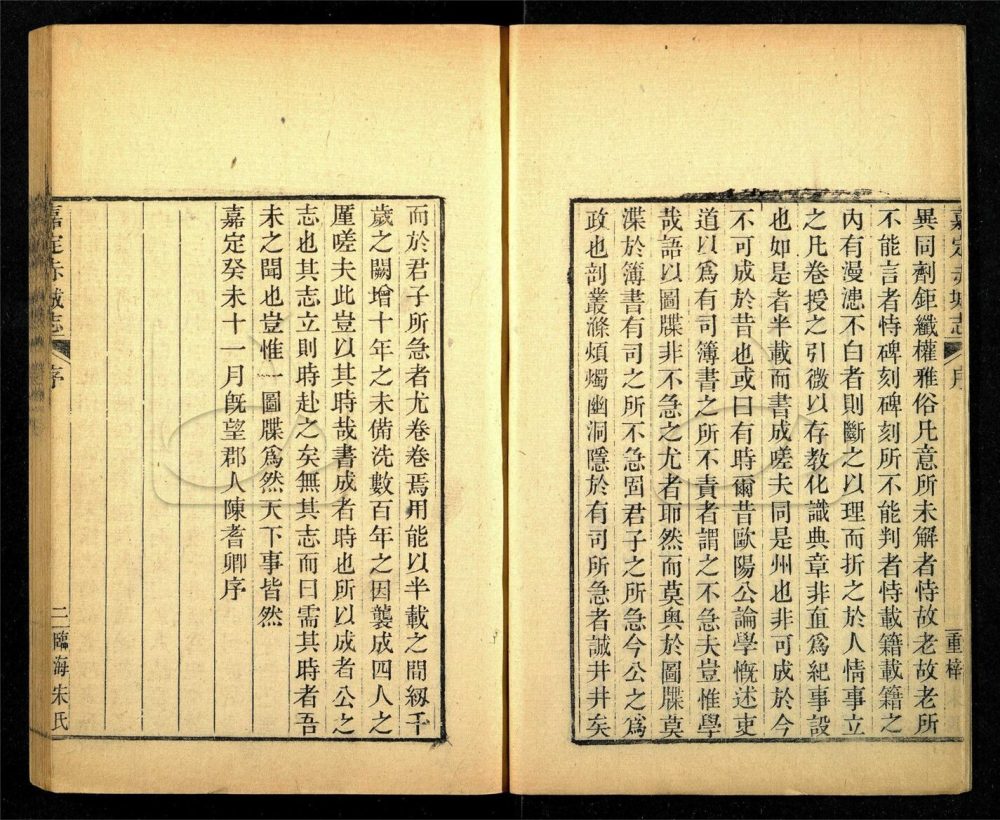 嘉定赤城志 序 重梓
異同劑鉅纖權雅俗凡意所未解者恃故老故老所
不能言者恃碑刻碑刻所不能判者恃載籍載籍之
內有漫漶不白者則斷之以理而折之於人情事立
之凡卷授之引微以存教化識典章非直爲紀事設
也如是者半載而書成嗟夫同是州也非可成於今
不可成於昔也或曰有時爾昔歐陽公論學慨述吏
道以爲有司簿書之所不責者謂之不急夫豈惟學
哉語以圖牒非不急之尤者耶然而莫輿於圖牒莫
渫於簿書有司之所不急固君子之所急今公之爲
政也剖叢滌煩燭幽洞隱於有司所急者誠井井矣
而於君子所急者尤卷卷焉用能以半載之間紉千
歲之闕增十年之未備洗數百年之因襲成四人之
厘嗟夫此豈以其時哉書成者時也所以成者公之
志也其志立則時赴之矣無其志而曰需其時者吾
未之聞也豈惟一圖牒爲然天下事皆然
嘉定癸未十一月旣望郡人陳耆卿序
嘉定赤城志 序 二 臨海朱氏